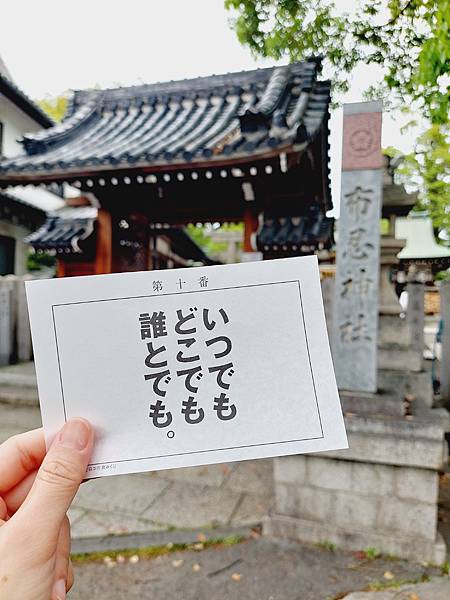 第十番
いつでも
どこでも
誰とでも。
布忍神社